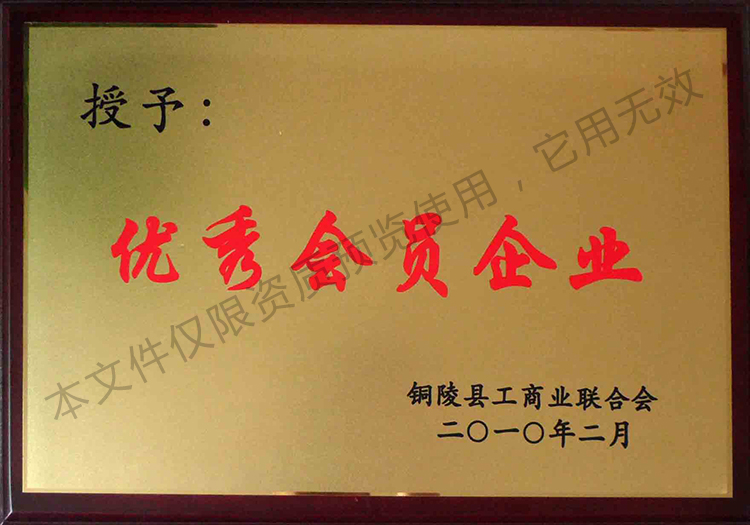 授予：
优秀会员企业
铜陵县工商业联合会
二〇一〇年二月
本文件仅限资质预览使用，它用无效